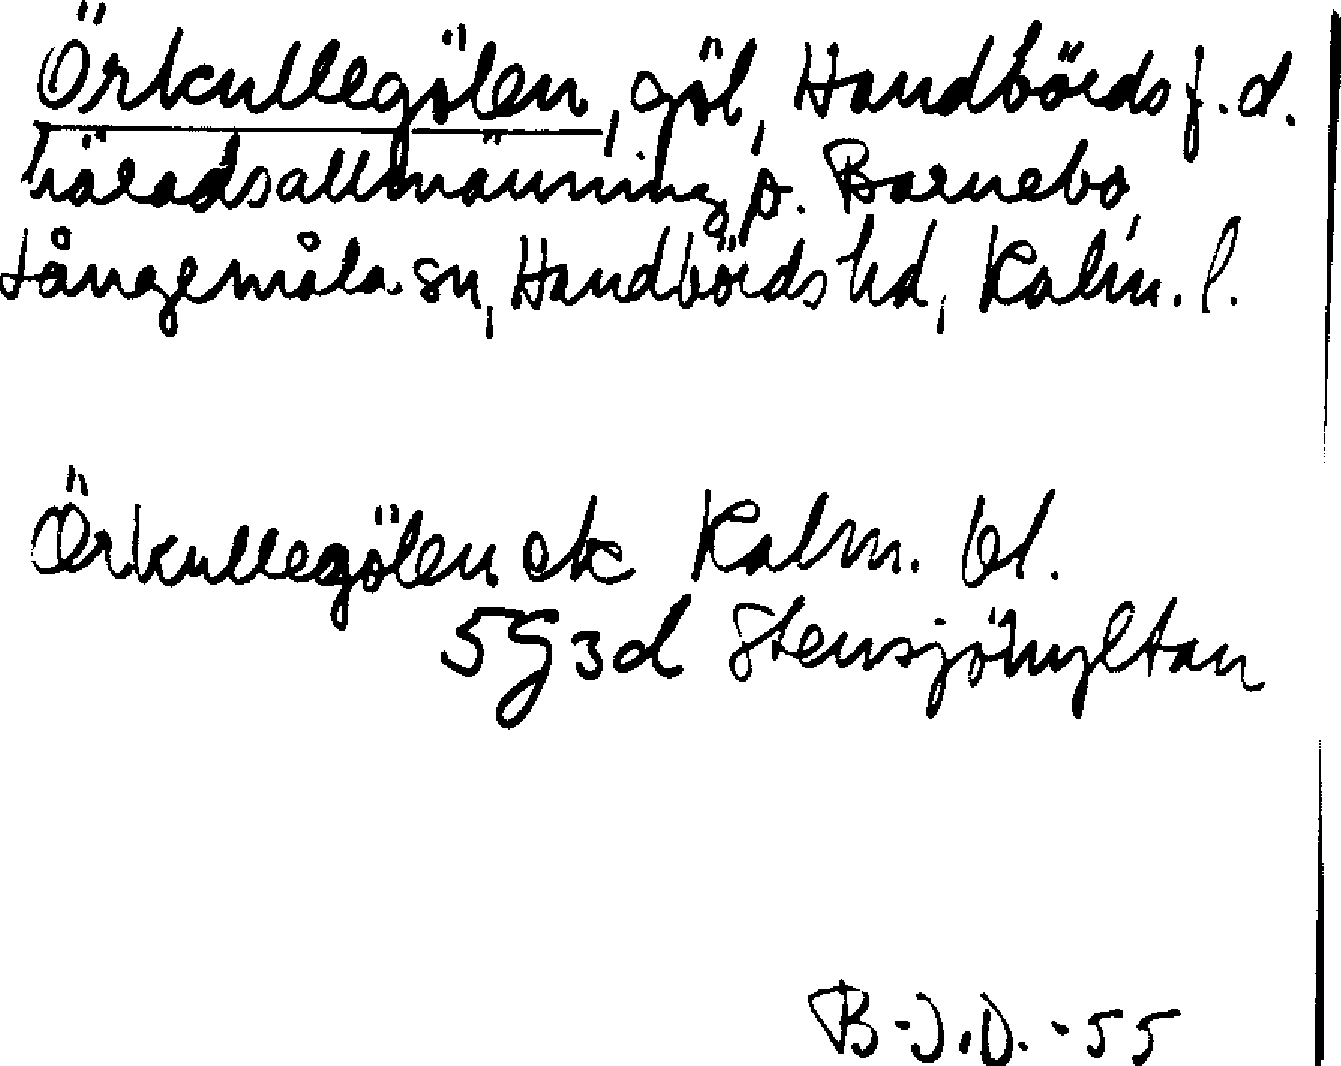 Örkullegölen, göl, Handbörds f.d.
häradsallmänning, p. Barnebo,
Långemåla sn, Handbörds hd, Kalm. l.
Örkullegölen ek Kalm. bl.
5G3d Stensjöhyltan
B-J.D.-55